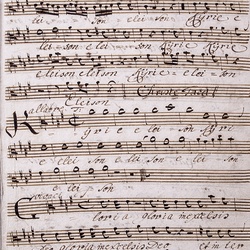 lei son e lei son Kyrie e
lei son e lei son Kyrie Kyrie
eleison eleison Kyrie e lei son
Eleison Christe Tacet
Kyrie e lei son Kyri
e e lei son e lei son e
lei son
Gloria gloria in excelsis
Deo gloria in excelsis Deo et in ter